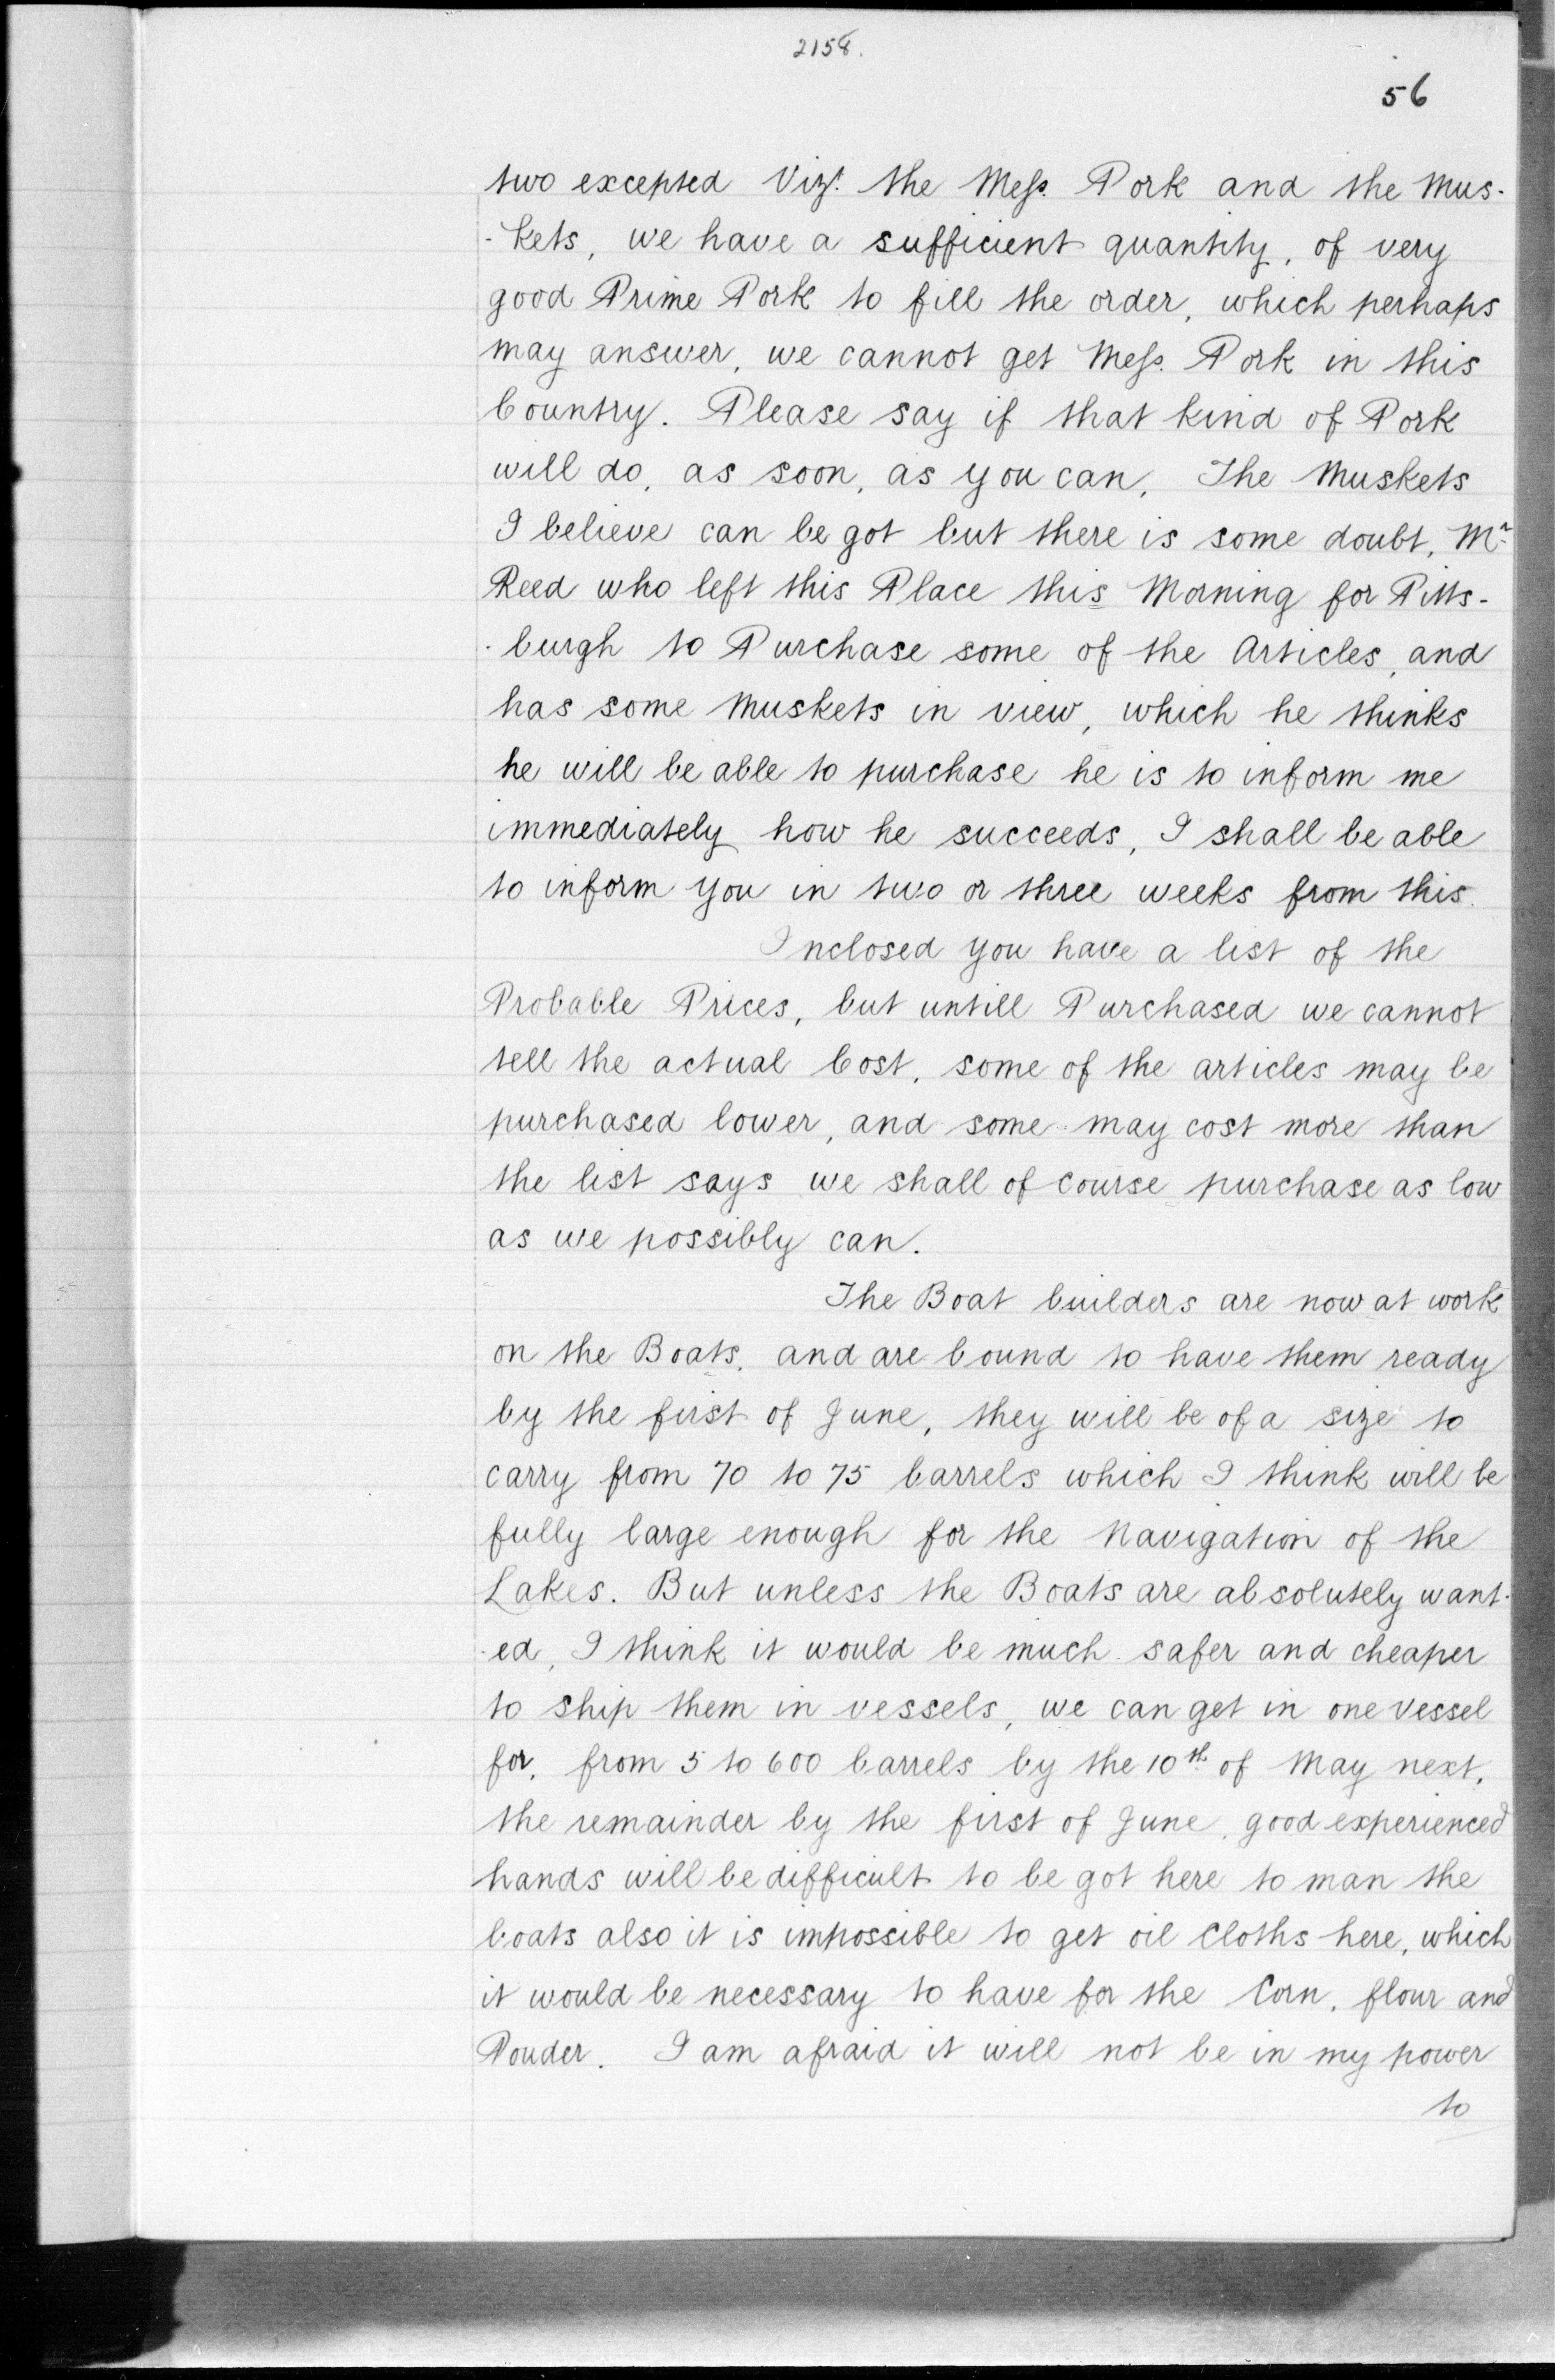 2158.
56
two excepted Vizt. the Mess. Pork and the Mus-
-kets, we have a sufficient quantity, of very
good Prime Pork to fill the order, which perhaps
may answer, we cannot get Mess. Pork in this
Country. Please say if that kind of Pork
will do, as soon, as you can, The Muskets
I believe can be got but there is some doubt, Mr.
Reed who left this Place this Morning for Pitts-
-burgh to Purchase some of the Articles, and
has some Muskets in view, which he thinks
he will be able to purchase he is to inform me
immediately how he succeeds, I shall be able
to inform you in two or three weeks from this.
Inclosed you have a list of the
Probable Prices, but untill Purchased we cannot
tell the actual Cost, some of the articles may be
purchased lower, and some may cost more than
the list says we shall of course purchase as low
as we possibly can.
The Boat builders are now at work
on the Boats, and are bound to have them ready
by the first of June, they will be of a size to
carry from 70 to 75 barrels which I think will be
fully large enough for the Navigation of the
Lakes. But unless the Boats are absolutely want-
-ed, I think it would be much safer and cheaper
to ship them in vessels, we can get in one vessel
for, from 5 to 600 barrels by the 10th of May next,
the remainder by the first of June, good experienced
hands will be difficult to be got here to man the
boats also it is impossible to get oil Cloths here, which
it would be necessary to have for the Corn, flour and
Pouder. I am afraid it will not be in my power
to